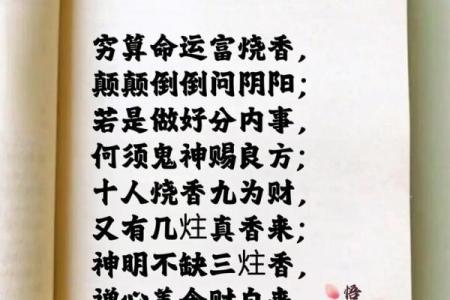 穷算命运富烧香，
颠颠倒倒问阴阳；
若是做好分内事，
何须鬼神赐良方；
十人烧香九为财，
又有几炷真香来；
神明不缺三炷香，
心财自来
悟